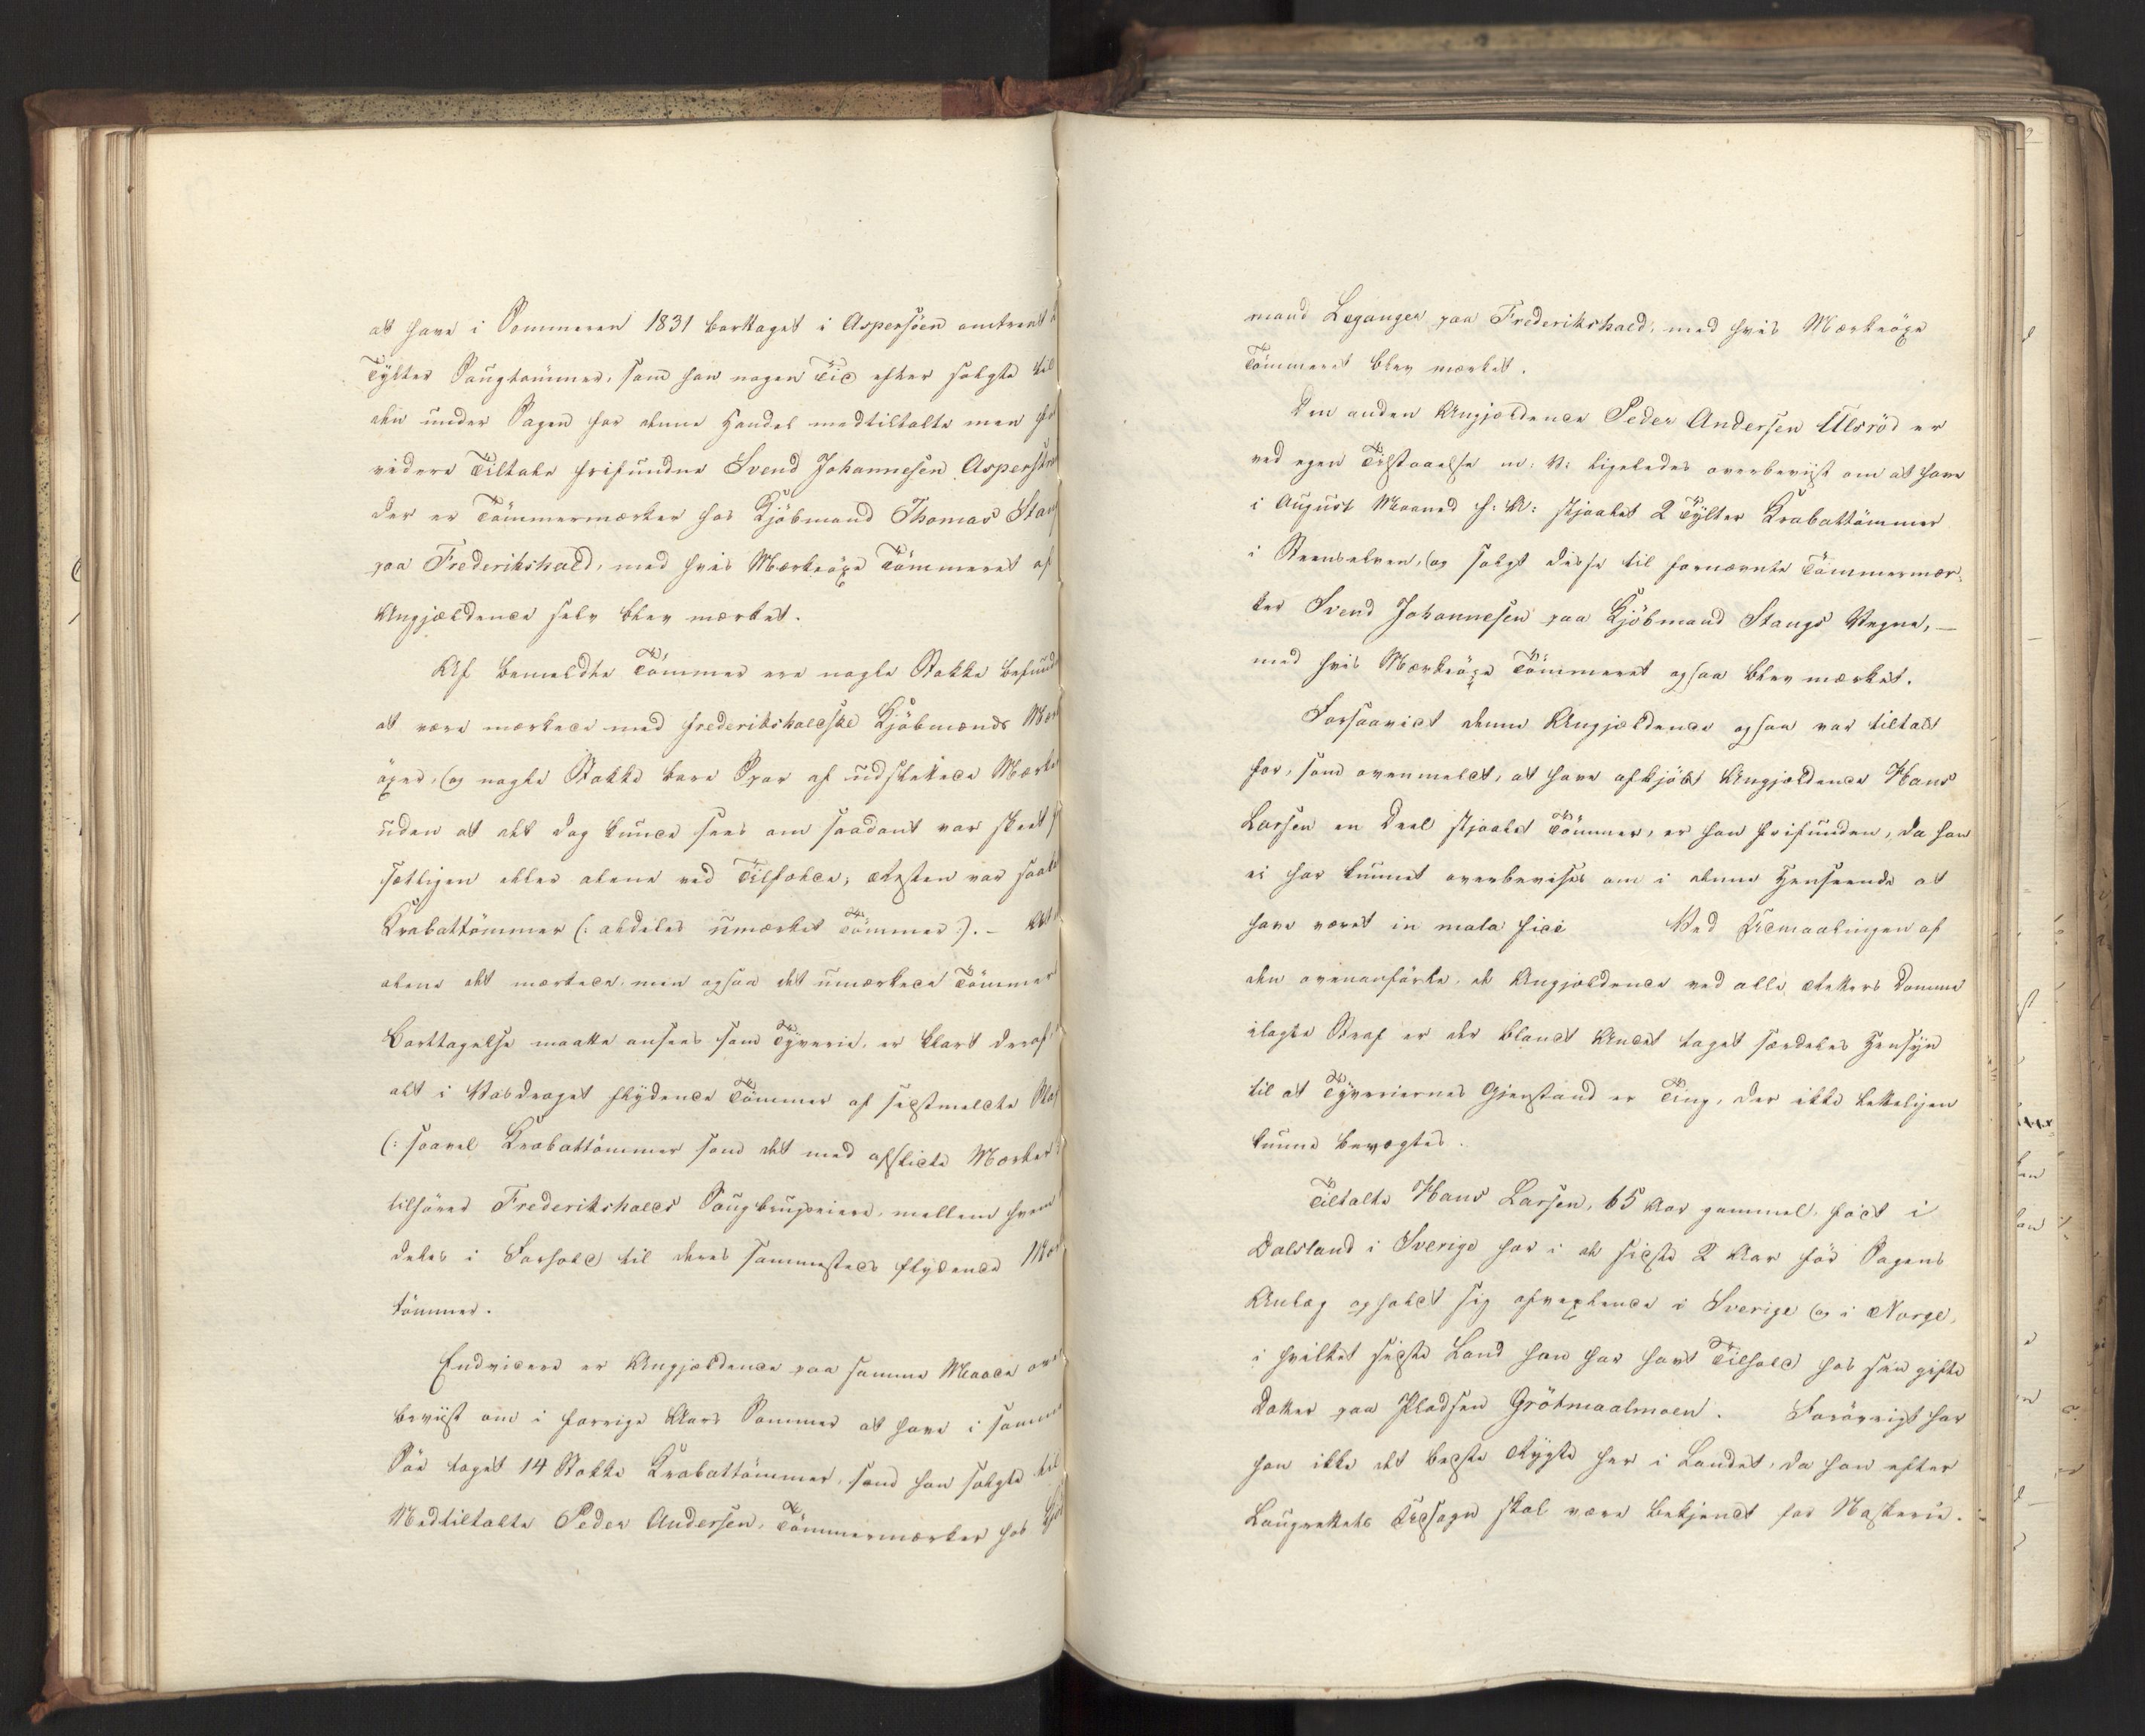 at have i Sommeren 1831 borttaget i Aspersöen omtrent
Tylter Saugtømmer, som han nogen Tid efter solgte til
den under Sagen for denne Handel medtiltalte men for
videre Tiltale frifundne Svend Johannesen Asper
der er Tømmermærker hos Kjöbmand Thomas Stang
paa Frederikshald, med hvis Mærkeöxe Tömmeret af
Angjældende selv blev mærket.
Af bemeldte Tömmer ere nogle Stokke befund
at være mærkede med frederikshaldske Kjöbmænds Mær
öxer, og nogle Stokke bare Spor af udslettede Mærke
uden at det dog kunde sees om saadant var skeet
sætligen eller alene ved Tilfælde; Resten var saak
Krabattömmer (: aldeles umærket Tömmer :). –
alene det mærkede, men ogsaa det umærkede Tömmer
Borttagelse maatte ansees som Tyverie, er klart deraf,
alt i Vasdraget flydende Tömmer af sidstmeldte
(: saavel Krabattömmer som det med afslidte Mærker
tilhörer Frederikshalds Saugbrugseiere, mellem hvem
deles i Forhold til deres sammesteds flydende
tömmer.
Endvidere er Angjældende paa samme Maade over
beviist om i forrige Aars Sommer at have i samme
Söe taget 14 Stokke Krabattömmer, som han solgte til
Medtiltalte Peder Andersen, Tömmermærker hos Kjöb
mand Leganger paa Frederikshald, med hvis Mærkeöxe
Tömmeret blev mærket.
Den anden Angjældende Peder Andersen Ulsröd er
ved egen Tilstaaelse m: V: ligeledes overbeviist om at have
i August Maaned f: A: stjaalet 2 Tylter Krabattömmer
i Steenselven, og solgt disse til fornævnte Tömmermær-
ker Svend Johannesen paa Kjöbmand Stangs Vegne, –
med hvis Mærkeöxe Tömmeret ogsaa blev mærket.
Forsaavidt denne Angjældende ogsaa var tiltalt
for, som ovenmeldt, at have afkjöbt Angjældende Hans
Larsen en Deel stjaalet Tömmer, er han frifunden, da han
ei har kunnet overbevises om i denne Henseende at
have været in mala fide Ved Udmaalingen af
den ovenanförte, de Angjældende ved alle Retters Domme
ilagte Straf er der blandt Andet taget særdeles Hensyn
til at Tyveriernes Gjenstand er Ting, der ikke letteligen
kunne bevogtes.
Tiltalte Hans Larsen, 65 Aar gammel, föd i
Dalsland i Sverige har i de sidste 2 Aar för Sagens
Anlæg opholdt sig afvexlende i Sverige og i Norge,
i hvilket sidste Land han har havt Tilhold hos sin gifte
Datter paa Pladsen Grötmaalmoen. Foröevrigt har
han ikke det bedste Rygte her i Landet, da han efter
Laugrettets Udsagn skal være bekjendt for Naskerie.